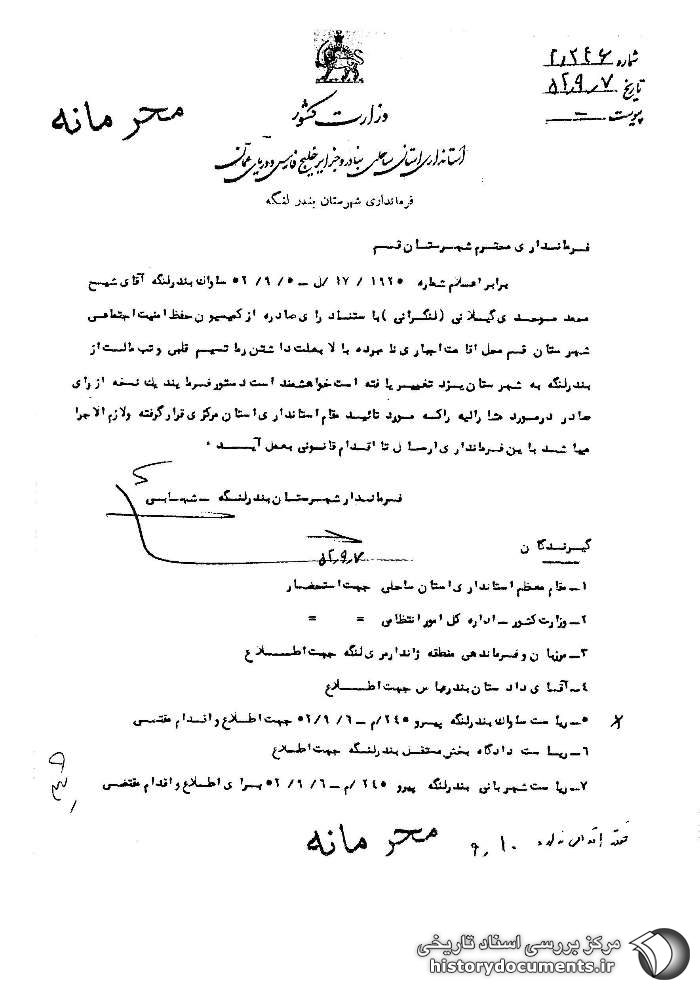 شماره ۲۰۲۴۶
تاریخ ۵۲٫۹٫۷
پیوست -
محرمانه
وزارت کشور
استانداری استان ساحلی بنادر و جزایر خلیج فارس و دریای عمان
فرمانداری شهرستان بندر لنگه
فرمانداری محترم شهرستان قم
برابر اعلام شماره ۱۹۲۵ / ۱۷ /ل - ۵۲/۹/۵ ساواک بندرلنگه آقای شیخ
محمد موحدی گیلانی (لنکرانی) باستناد رای صادره از کمیسیون حفظ امنیت اجتماعی
شهرستان قم محل اقامت اجباری نامبرده بالا بعلت داشتن رماتیسم قلبی و تب مالت از
بندرلنگه به شهرستان یزد تغییر یافته است خواهشمند است دستور فرمایند یک نسخه از رای
صادر درمورد مشارالیه راکه مورد تائید مقام استانداری استان مرکزی قرار گرفته ولازم الاجرا
میباشد باین فرمانداری ارسال تا اقدام قانونی بعمل آید ۰
فرماندار شهرستان بندرلنگه - شهابی
۵۲٫۹٫۷
گیرندگان
۱- مقام معظم استانداری استان ساحلی جهت استحضار
۲- وزارت کشور - اداره کل امور انتظامی = =
۳- مرزبان و فرماندهی منطقه ژاندارمری لنگه جهت اطلاع
۴- آقای دادستان بندرعباس جهت اطلاع
۵- ریاست ساواک بندرلنگه پیرو ۲۴۵/م - ۵۲/۹/۶ جهت اطلاع و اقدام مقتضی
۶- ریاست دادگاه بخش مستقل بندرلنگه جهت اطلاع
۷- ریاست شهربانی بندرلنگه پیرو ۲۴۵ /م - ۵۲/۹/۶ برای اطلاع و اقدام مقتضی
محرمانه
۹٫۱۰
مرکز بررسی اسناد تاریخی
historydocuments.ir